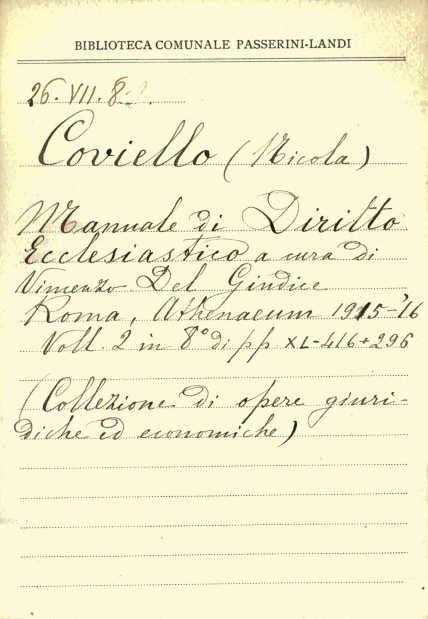 BIBLIOTECA COMUNALE PASSERINI-LANDI
26. VII. 8
Coviello (Nicola)
Manuale di Diritto
Ecclesiastico a cura di
Vincenzo Del Giudice
Roma, Athenaeum 1915-'16
Voll. 2 in 8° di pp XL-416+296
(Collezione di opere giuri-
diche ed economiche)